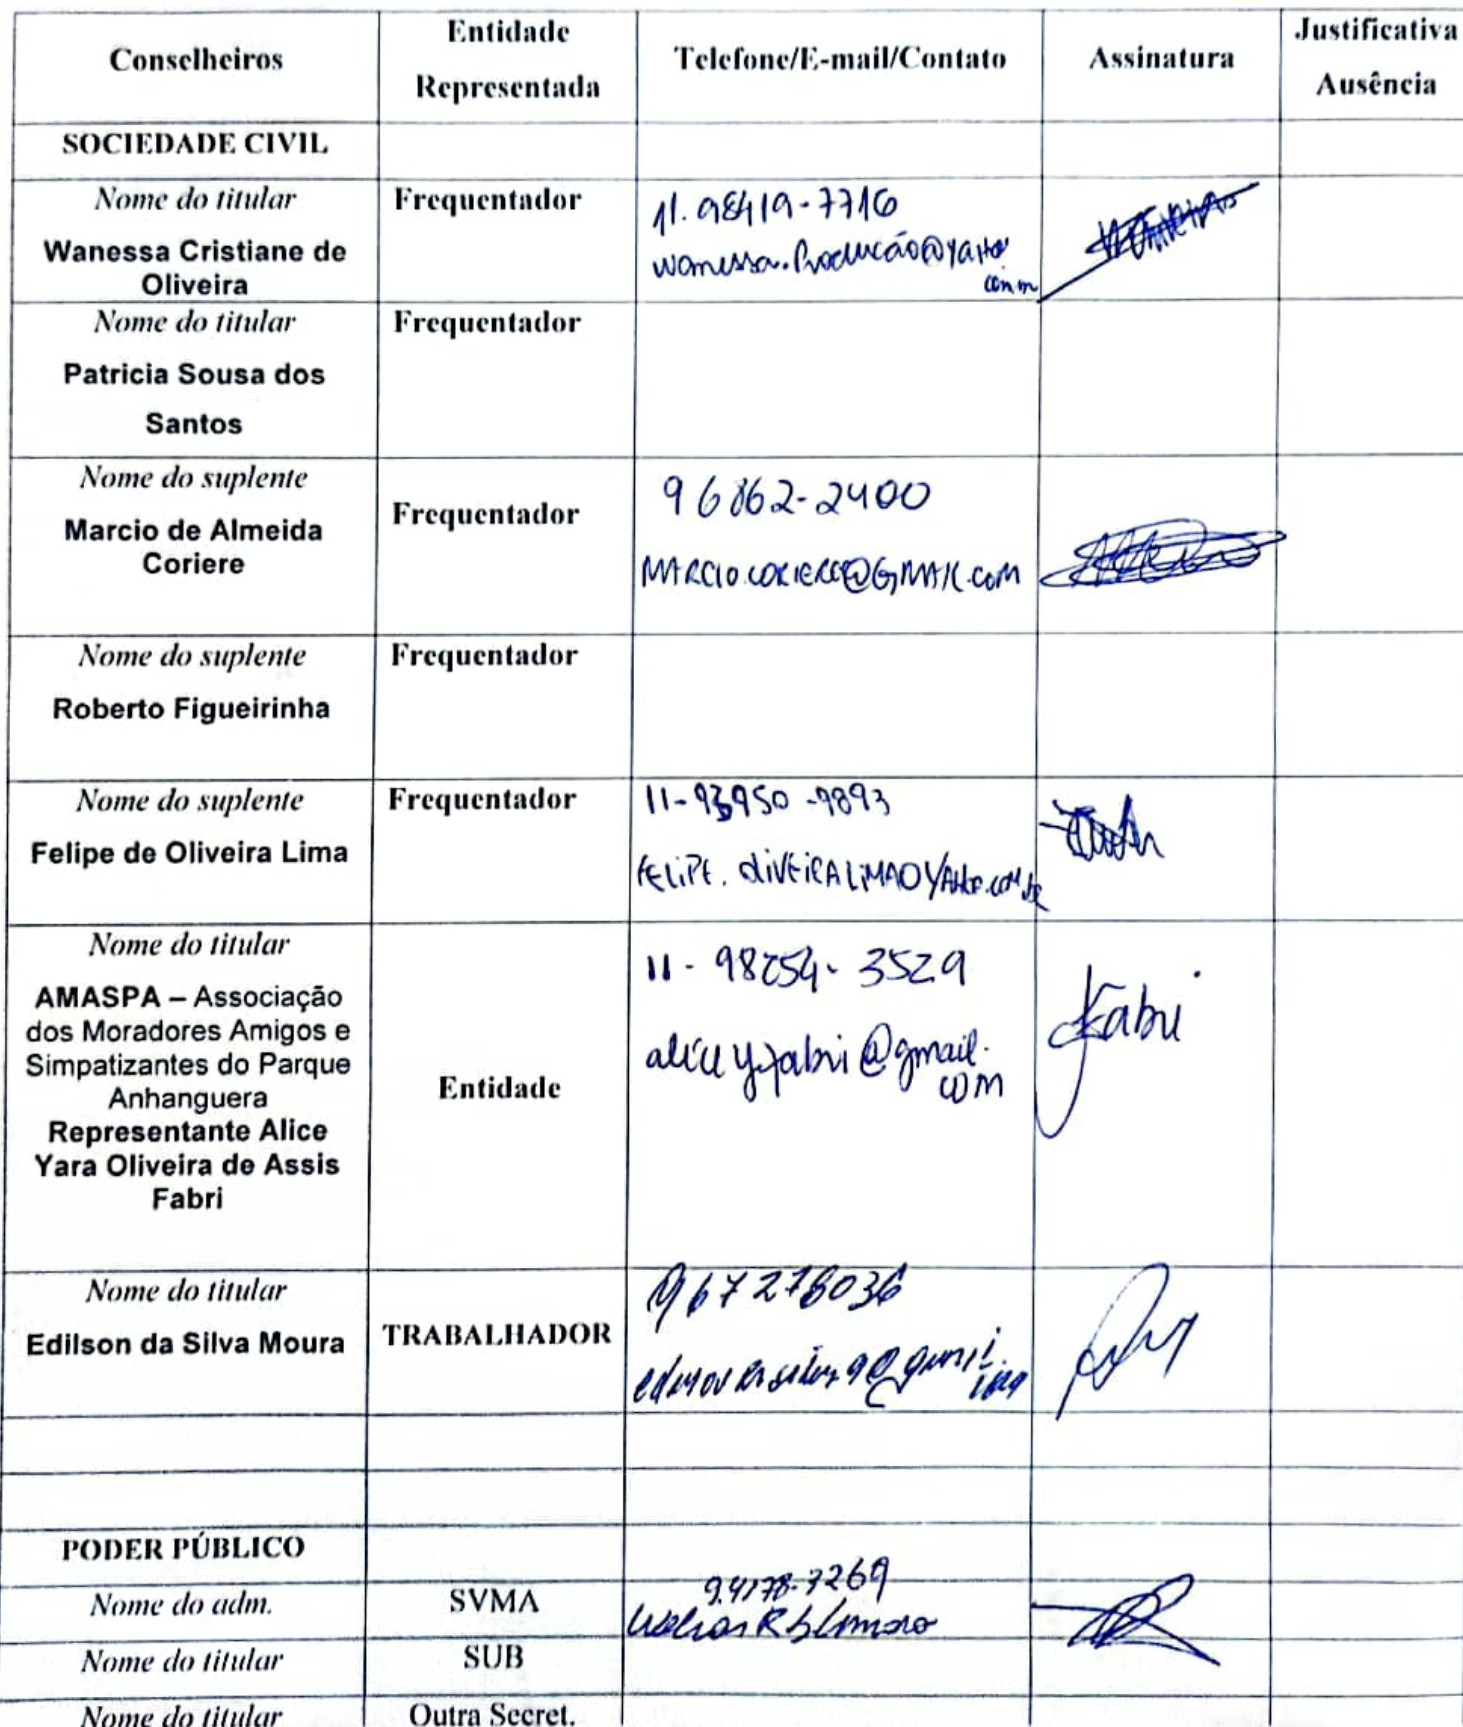 Conselheiros
Entidade
Representada
Telefone/E-mail/Contato
Assinatura
Justificativa
Ausência
SOCIEDADE CIVIL
Nome do titular
Wanessa Cristiane de
Oliveira
Frequentador
11. 98419-7716
wanessa.Produção@yahoo
Nome do titular
Patricia Sousa dos
Santos
Frequentador
Nome do suplente
Marcio de Almeida
Coriere
Frequentador
96862-2400
MARCIO.CORIERE@GMAIL.COM
Nome do suplente
Roberto Figueirinha
Frequentador
Nome do suplente
Felipe de Oliveira Lima
Frequentador
11-93950-9893
Nome do titular
AMASPA – Associação
dos Moradores Amigos e
Simpatizantes do Parque
Anhanguera
Representante Alice
Yara Oliveira de Assis
Fabri
Entidade
11 - 98254- 3529
aliceyfabri@gmail.
com
Fabri
Nome do titular
Edilson da Silva Moura
TRABALHADOR
967276036
PODER PÚBLICO
Nome do adm.
SVMA
9.4178-7269
Nome do titular
SUB
Nome do titular
Outra Secret.